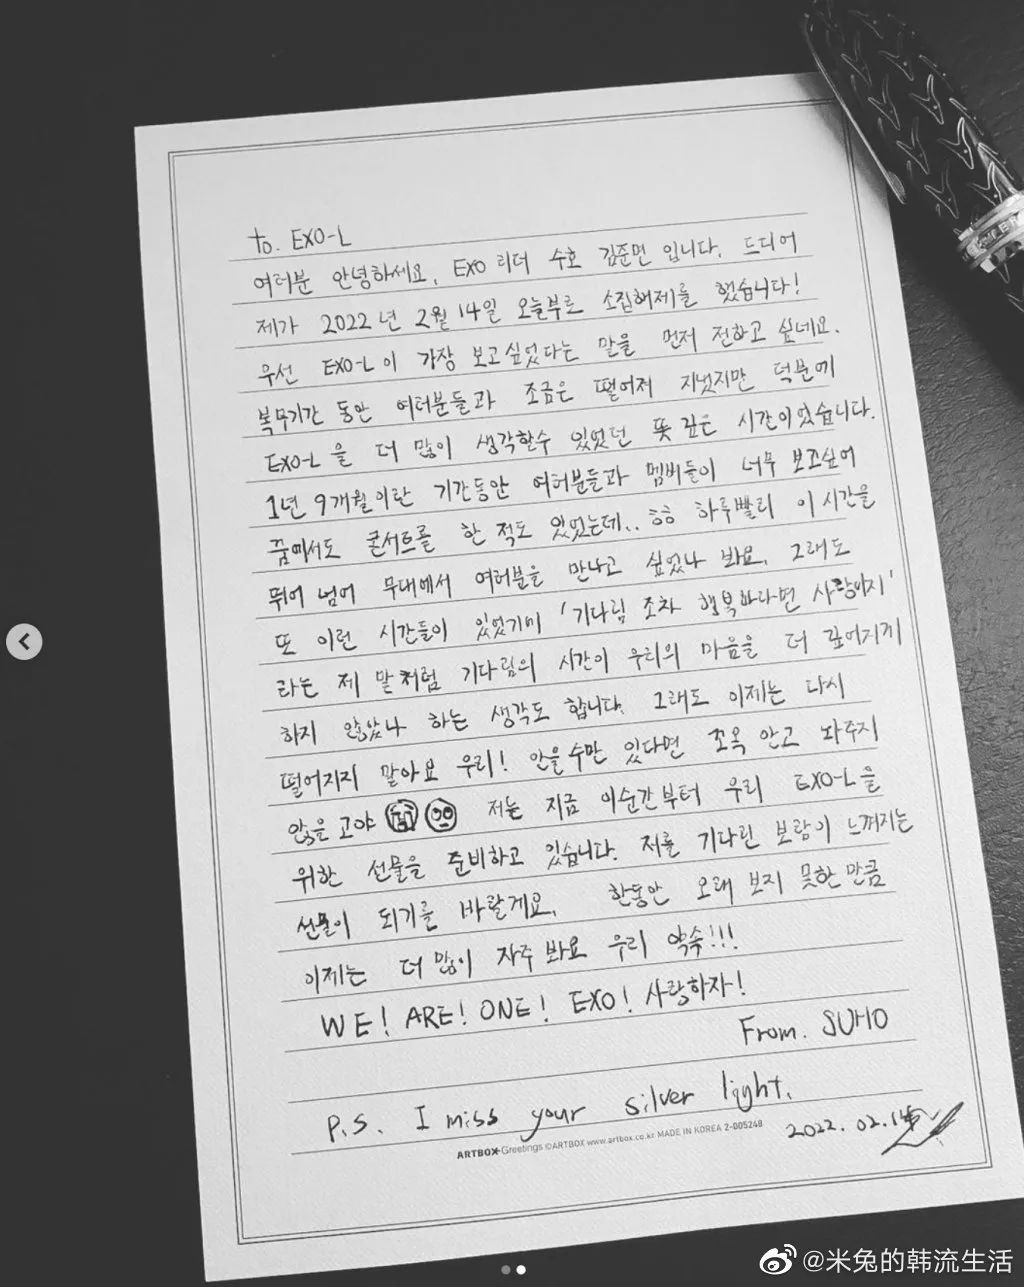 to. EXO-L
여러분 안녕하세요, EXO 리더 수호 김준면 입니다. 드디어
제가 2022년 2월 14일 오늘부로 소집해제를 했습니다!
우선 EXO-L이 가장 보고싶었다는 말을 먼저 전하고 싶네요.
복무기간 동안 여러분들과 조금은 떨어져 지냈지만 덕분에
EXO-L을 더 많이 생각할수 있었던 뜻 깊은 시간이었습니다.
1년 9개월이란 기간동안 여러분들과 멤버들이 너무 보고싶어
꿈에서도 콘서트를 한 적도 있었는데.. ㅎㅎ 하루빨리 이 시간을
뛰어 넘어 무대에서 여러분을 만나고 싶었나 봐요. 그래도
또 이런 시간들이 있었기에 '기다림 조차 행복하다면 사랑이지'
라는 제 말처럼 기다림의 시간이 우리의 마음을 더 깊어지게
하지 않았나 하는 생각도 합니다. 그래도 이제는 다시
떨어지지 말아요 우리! 안을수만 있다면 꼬옥 안고 놔주지
않을고야 저는 지금 이순간부터 우리 EXO-L을
위한 선물을 준비하고 있습니다. 저를 기다린 보람이 느껴지는
선물이 되기를 바랄게요. 한동안 오래 보지 못한 만큼
이제는 더 많이 자주 봐요 우리 약속!!!
WE! ARE! ONE! EXO! 사랑하자!
From. SUHO
P.S. I miss your silver light.
2022.02.14
ARTBOX Greetings ©ARTBOX www.artbox.co.kr MADE IN KOREA 2-005248
@米兔的韩流生活